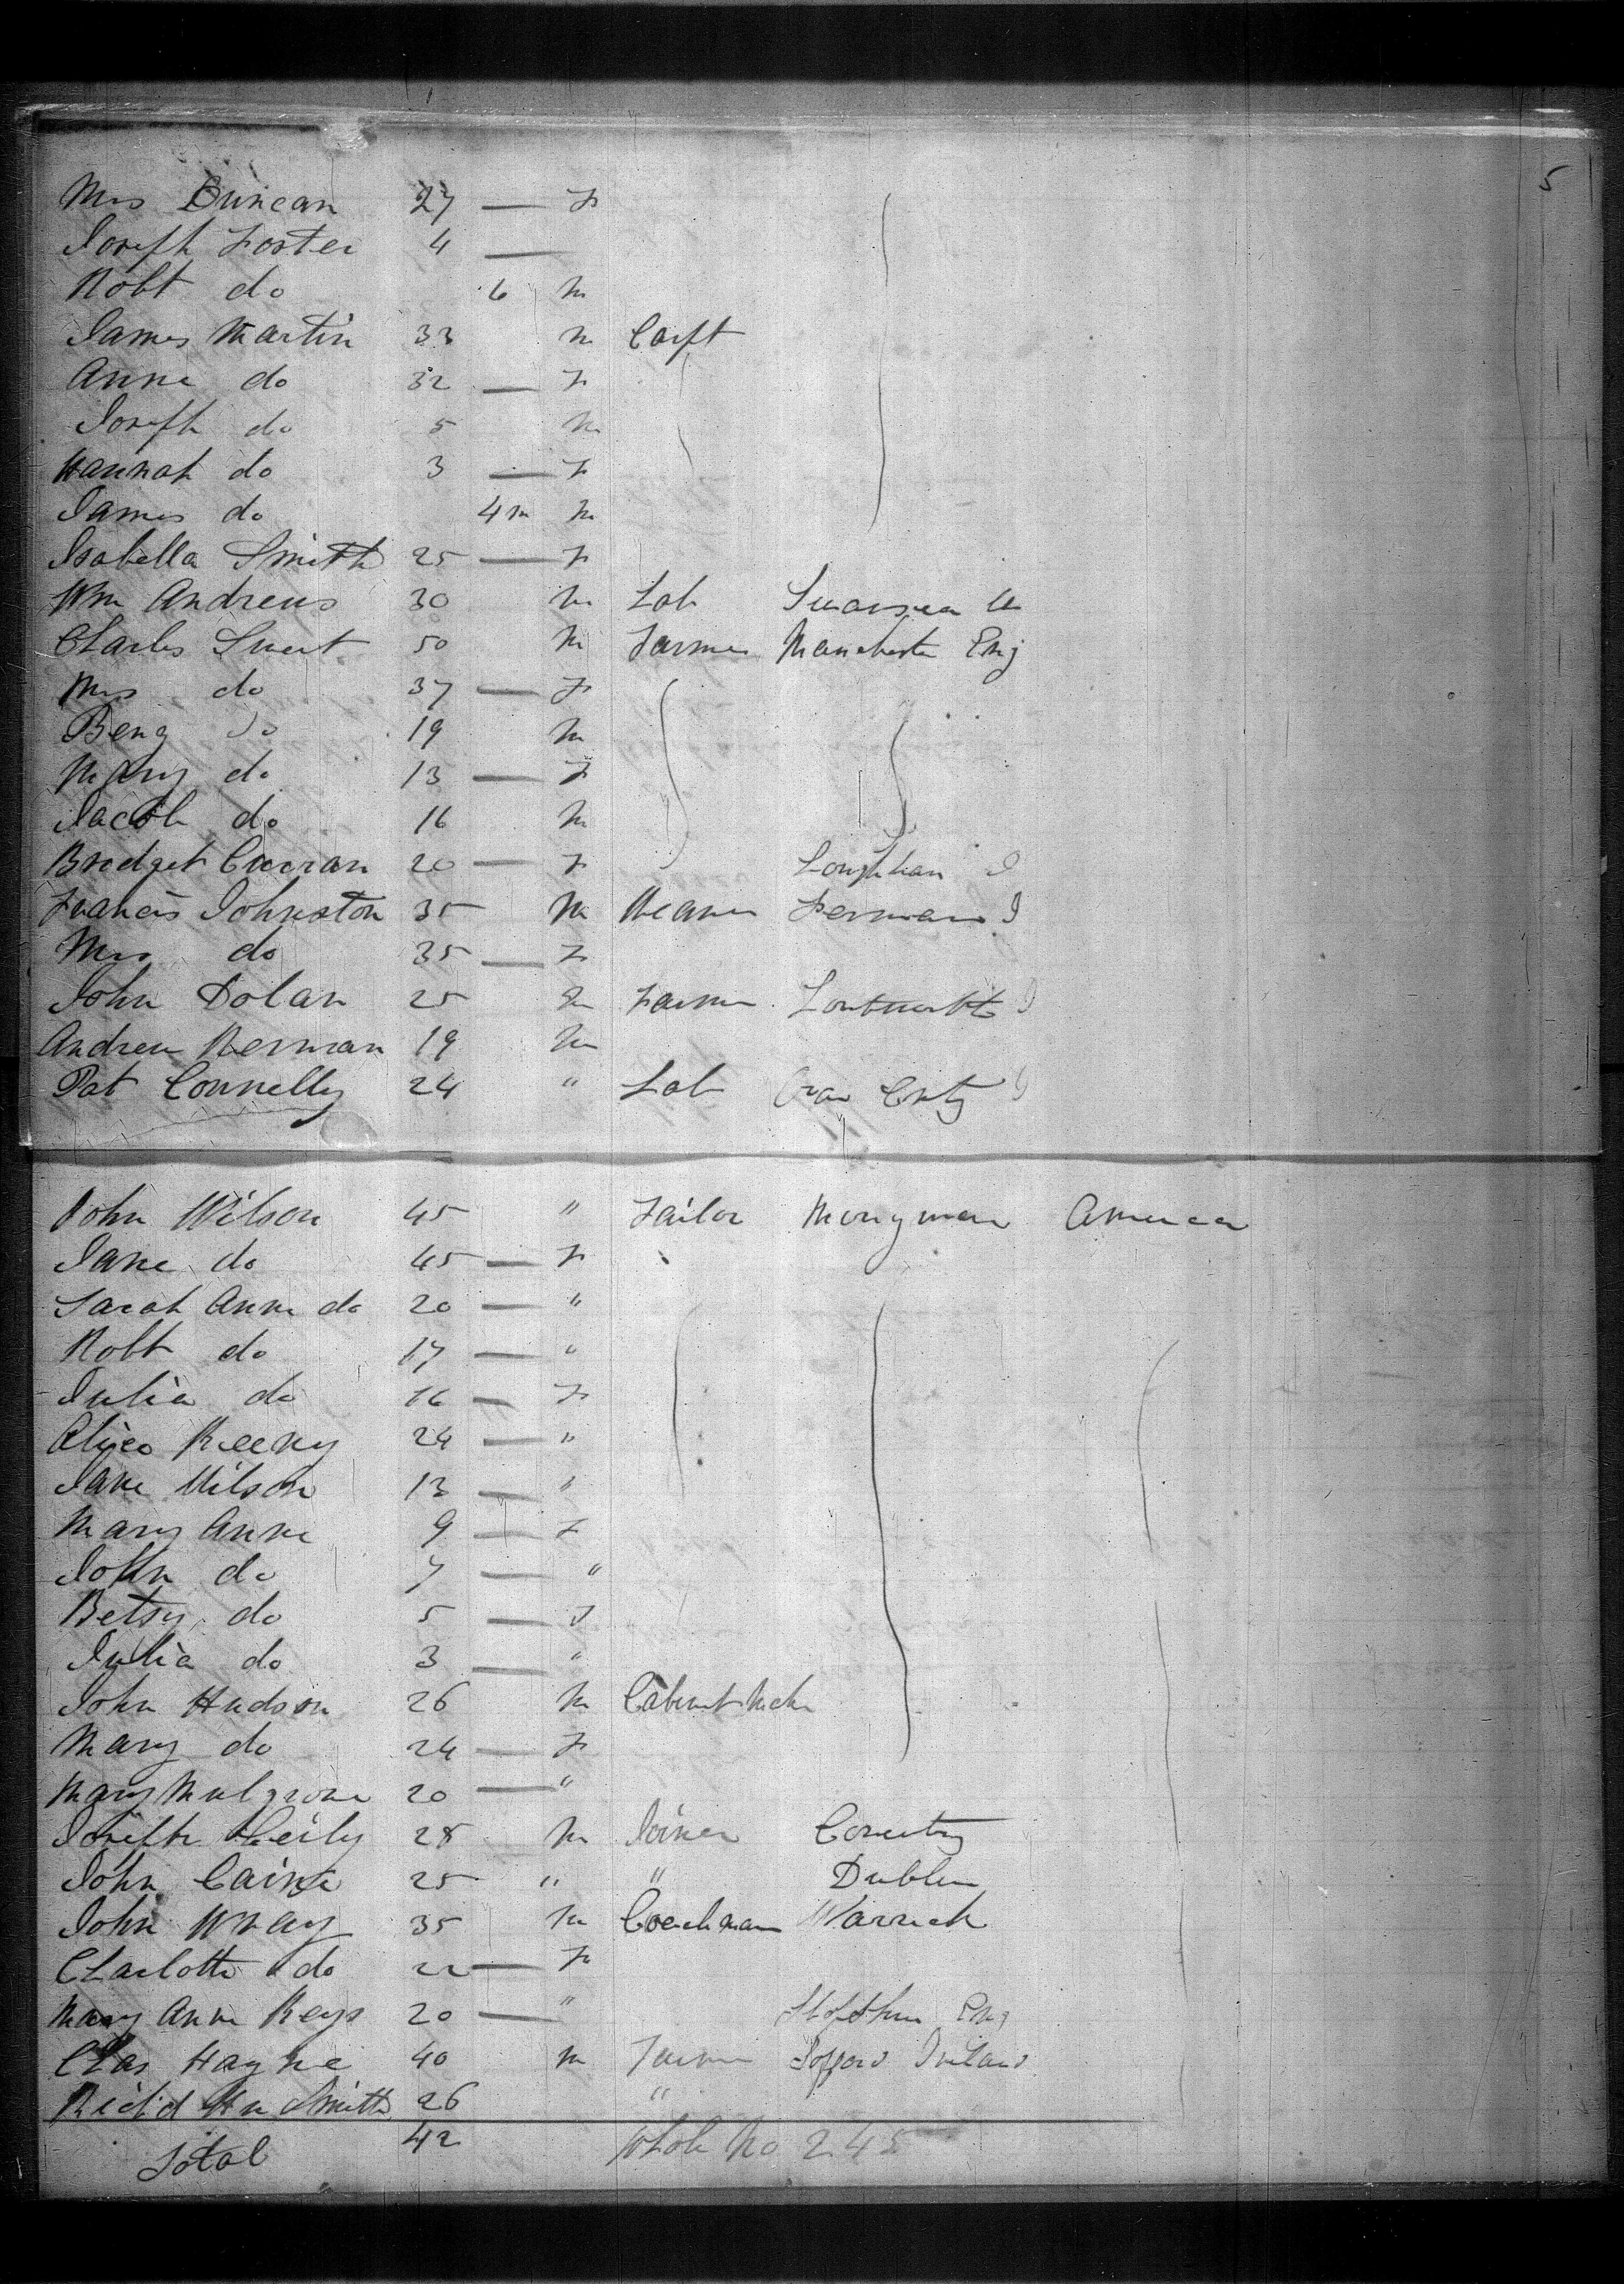 5
Mrs Duncan 27 — F
Joseph Foster 4 —
Robt do 6 m
James Martin 33 m Carpt
Anne do 32 — F
Joseph do 5 m
Hannah do 3 — F
James do 4m m
Isabella Smith 25 — F
Wm Andrews 30 m Lab Swansea W
Charles Swet 50 m Farmer Manchester Eng
Mrs do 37 — F
Benj do 19 m
Mary do 13 — F
Jacob do 16 m
Bridget Curran 20 — F I
Francis Johnston 35 m Weaver Ferman I
Mrs do 35 — F
John Dolan 25 m Farmer I
Andrew Kernan 19 m
Pat Connelly 24 " Lab Cnty I
John Wilson 45 " Tailor America
Jane do 45 — F
Sarah Anne do 20 — "
Robt do 17 — "
Julia do 16 — F
Alice Keeny 24 — "
Jane Wilson 13 — "
Mary Anne 9 — F
John do 7 — "
Betsy do 5 — F
Julia do 3 — "
John Hudson 26 m Cabinet Mckr
Mary do 24 — F
Mary Mulgrove 20 — "
Joseph 28 m Joiner Coventry
John Caine 25 " " Dublin
John Wray 35 m Coachman Warrick
Charlotte do 22 — F
Mary Anne Keys 20 — " Eng
Chas Hayne 40 m Farmer Ireland
Richd Wm Smith 26 "
Total 42 Whole No 245